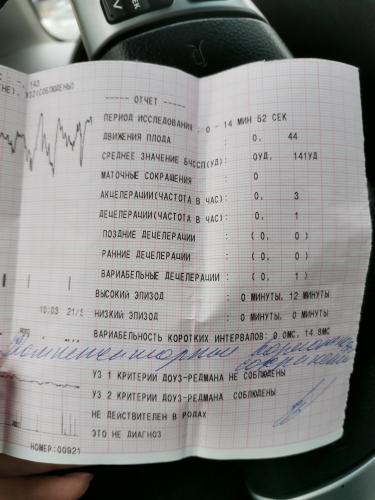 143
УЗ2(СОБЛЮДЕНЫ)
----- ОТЧЕТ -----
ПЕРИОД ИССЛЕДОВАНИЯ - 0 - 14 МИН 52 СЕК
ДВИЖЕНИЯ ПЛОДА : 0, 44
СРЕДНЕЕ ЗНАЧЕНИЕ БЧССП(УД): 0УД, 141УД
МАТОЧНЫЕ СОКРАЩЕНИЯ : 0
АКЦЕЛЕРАЦИИ(ЧАСТОТА В ЧАС): 0, 3
ДЕЦЕЛЕРАЦИИ(ЧАСТОТА В ЧАС): 0, 1
ПОЗДНИЕ ДЕЦЕЛЕРАЦИИ : ( 0, 0 )
РАННИЕ ДЕЦЕЛЕРАЦИИ : ( 0, 0 )
ВАРИАБЕЛЬНЫЕ ДЕЦЕЛЕРАЦИИ : ( 0, 1 )
ВЫСОКИЙ ЭПИЗОД : 0 МИНУТЫ, 12 МИНУТЫ
10:03 21/5
НИЗКИЙ ЭПИЗОД : 0 МИНУТЫ, 0 МИНУТЫ
ВАРИАБЕЛЬНОСТЬ КОРОТКИХ ИНТЕРВАЛОВ: 0.0МС, 14.8МС
УЗ 1 КРИТЕРИИ ДОУЗ-РЕДМАНА НЕ СОБЛЮДЕНЫ
УЗ 2 КРИТЕРИИ ДОУЗ-РЕДМАНА СОБЛЮДЕНЫ
НЕ ДЕЙСТВИТЕЛЕН В РОДАХ
ЭТО НЕ ДИАГНОЗ
НОМЕР:00921